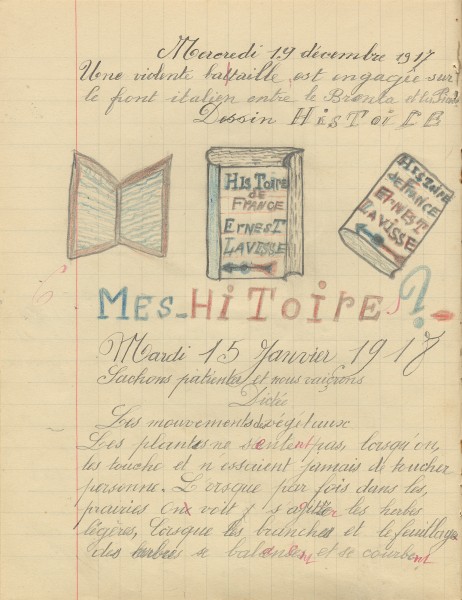 Mercredi 19 décembre 1917
Une violente bataille est engagée sur
le front italien entre le Brenta et la Piave
Dessin HisToire
HisToire
de
France
Ernest
Lavisse
Histoire
de France
Ernest
Lavisse
Mes-HiToires ?
Mardi 15 Janvier 1917
Sachons patienter et nous vaincrons
Dictée
Les mouvements des végétaux
Les plantes ne sentent pas, lorsqu'on
les touche et n'essaient jamais de toucher
personne. Lorsque par fois dans les,
prairies on voit s'agiter les herbes
légères, lorsque les branches et le feuillage
des herbes se balancent et se courbent